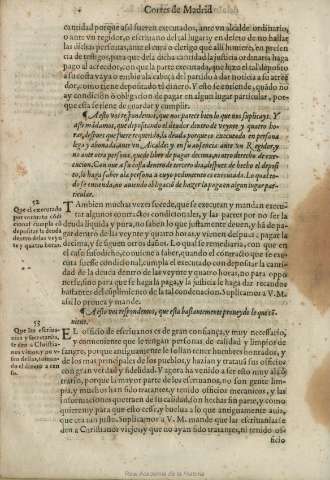 Cortes de Madrid
cantidad porque assi fueren executados, ante vn alcalde ordinario,
o ante vn regidor, o escriuano del tal lugar, y en defeto de no hallar
las dichas personas, ante el cura o clerigo que alli huuiere, en presen
cia de testigos, para que dela dicha cantidad la justicia ordinaria haga
pago al acreedor, con que la parte executada, que hizo el tal deposito
a su costa vaya o embie a la cabeça del partido a dar noticia a su acree
dor, como tiene depositado el dinero. Y esto se entiende, quãdo no
ay condicion o obligacion de pagar en algun lugar particular, por-
que essa se tiene de guardar y cumplir.
¶ A esto vos respondemos, que nos parece bien lo que nos suplicays. Y
assi mãdamos, que depositando el deudor dentro de veynte y quatro ho-
ras, despues que fuere requerido, la deuda porque es executado en persona
lega y abonada, ante vn Alcalde, y en su ausencia ante vn Regidor, y
no ante otra persona, quede libre de pagar decima, ni otro derecho de exe-
cucion. Con que a su costa dentro de tercero dia, despues de hecho el deposi-
to, lo haga saber a la persona a cuyo pedimento es executado. Lo qual to-
do se entienda, no auiendo obligaciõ de hazer la paga en algun lugar par-
ticular.
52
Que el executado
por contrato cõdi
cional cumpla cõ
depositar la deuda
dentro de las veyn
te y quatro horas.
TAmbien muchas vezes sucede, que se executan y mandan execu-
tar algunos contractos condicionales, y las partes por no ser la
deuda liquida y pura, no saben lo que justamente deuen, y hã de pa-
gar dentro de la veynte y quatro horas, y vienen despues a pagar la
decima, y se siguen otros daños. Lo qual se remediaria, con que en
el caso susodicho, conuiene a saber, quando el contracto porque se exe-
cuta fuesse condicional, cumpla el executado con depositar la canti-
dad de la deuda dentro de las veynte y quatro horas, no para oppo-
nerse, sino para que se haga la paga, y la justicia se haga dar recaudos
bastantes del cumplimiento de la tal condenacion. Suplicamos a V. M.
assi lo prouea y mande.
¶ A esto vos respondemos, que esta bastantemente proueydo lo que cõ-
uiene.
53
Que los escriua-
nos y secretarios,
se den a Christia-
nos
EL officio de escriuanos es de gran confiança, y muy necessario,
y conueniente que le tengan personas de calidad y limpios de
sangre, porque antiguamente le solian tener hombres honrados, y
de los mas principales de los pueblos, y hazian y tratauã sus officios
con gran verdad y fidelidad. Y agora ha venido a ser esto muy al cõ
trario, porque la mayor parte de los escriuanos, no son gente lim-
pia, y muchos han sido tratantes, y tenido officios mecanicos, y las
informaciones que traen de su calidad, son hechas sin parte, y como
quieren, y para que esto cesse, y buelua a lo que antiguamente auia,
que era tan justo. Suplicamos a V. M. mande que las escriuanias se
den a Christianos viejos, y que no ayan sido tratantes, ni tenido of-
ficio
Real Academia de la Historia